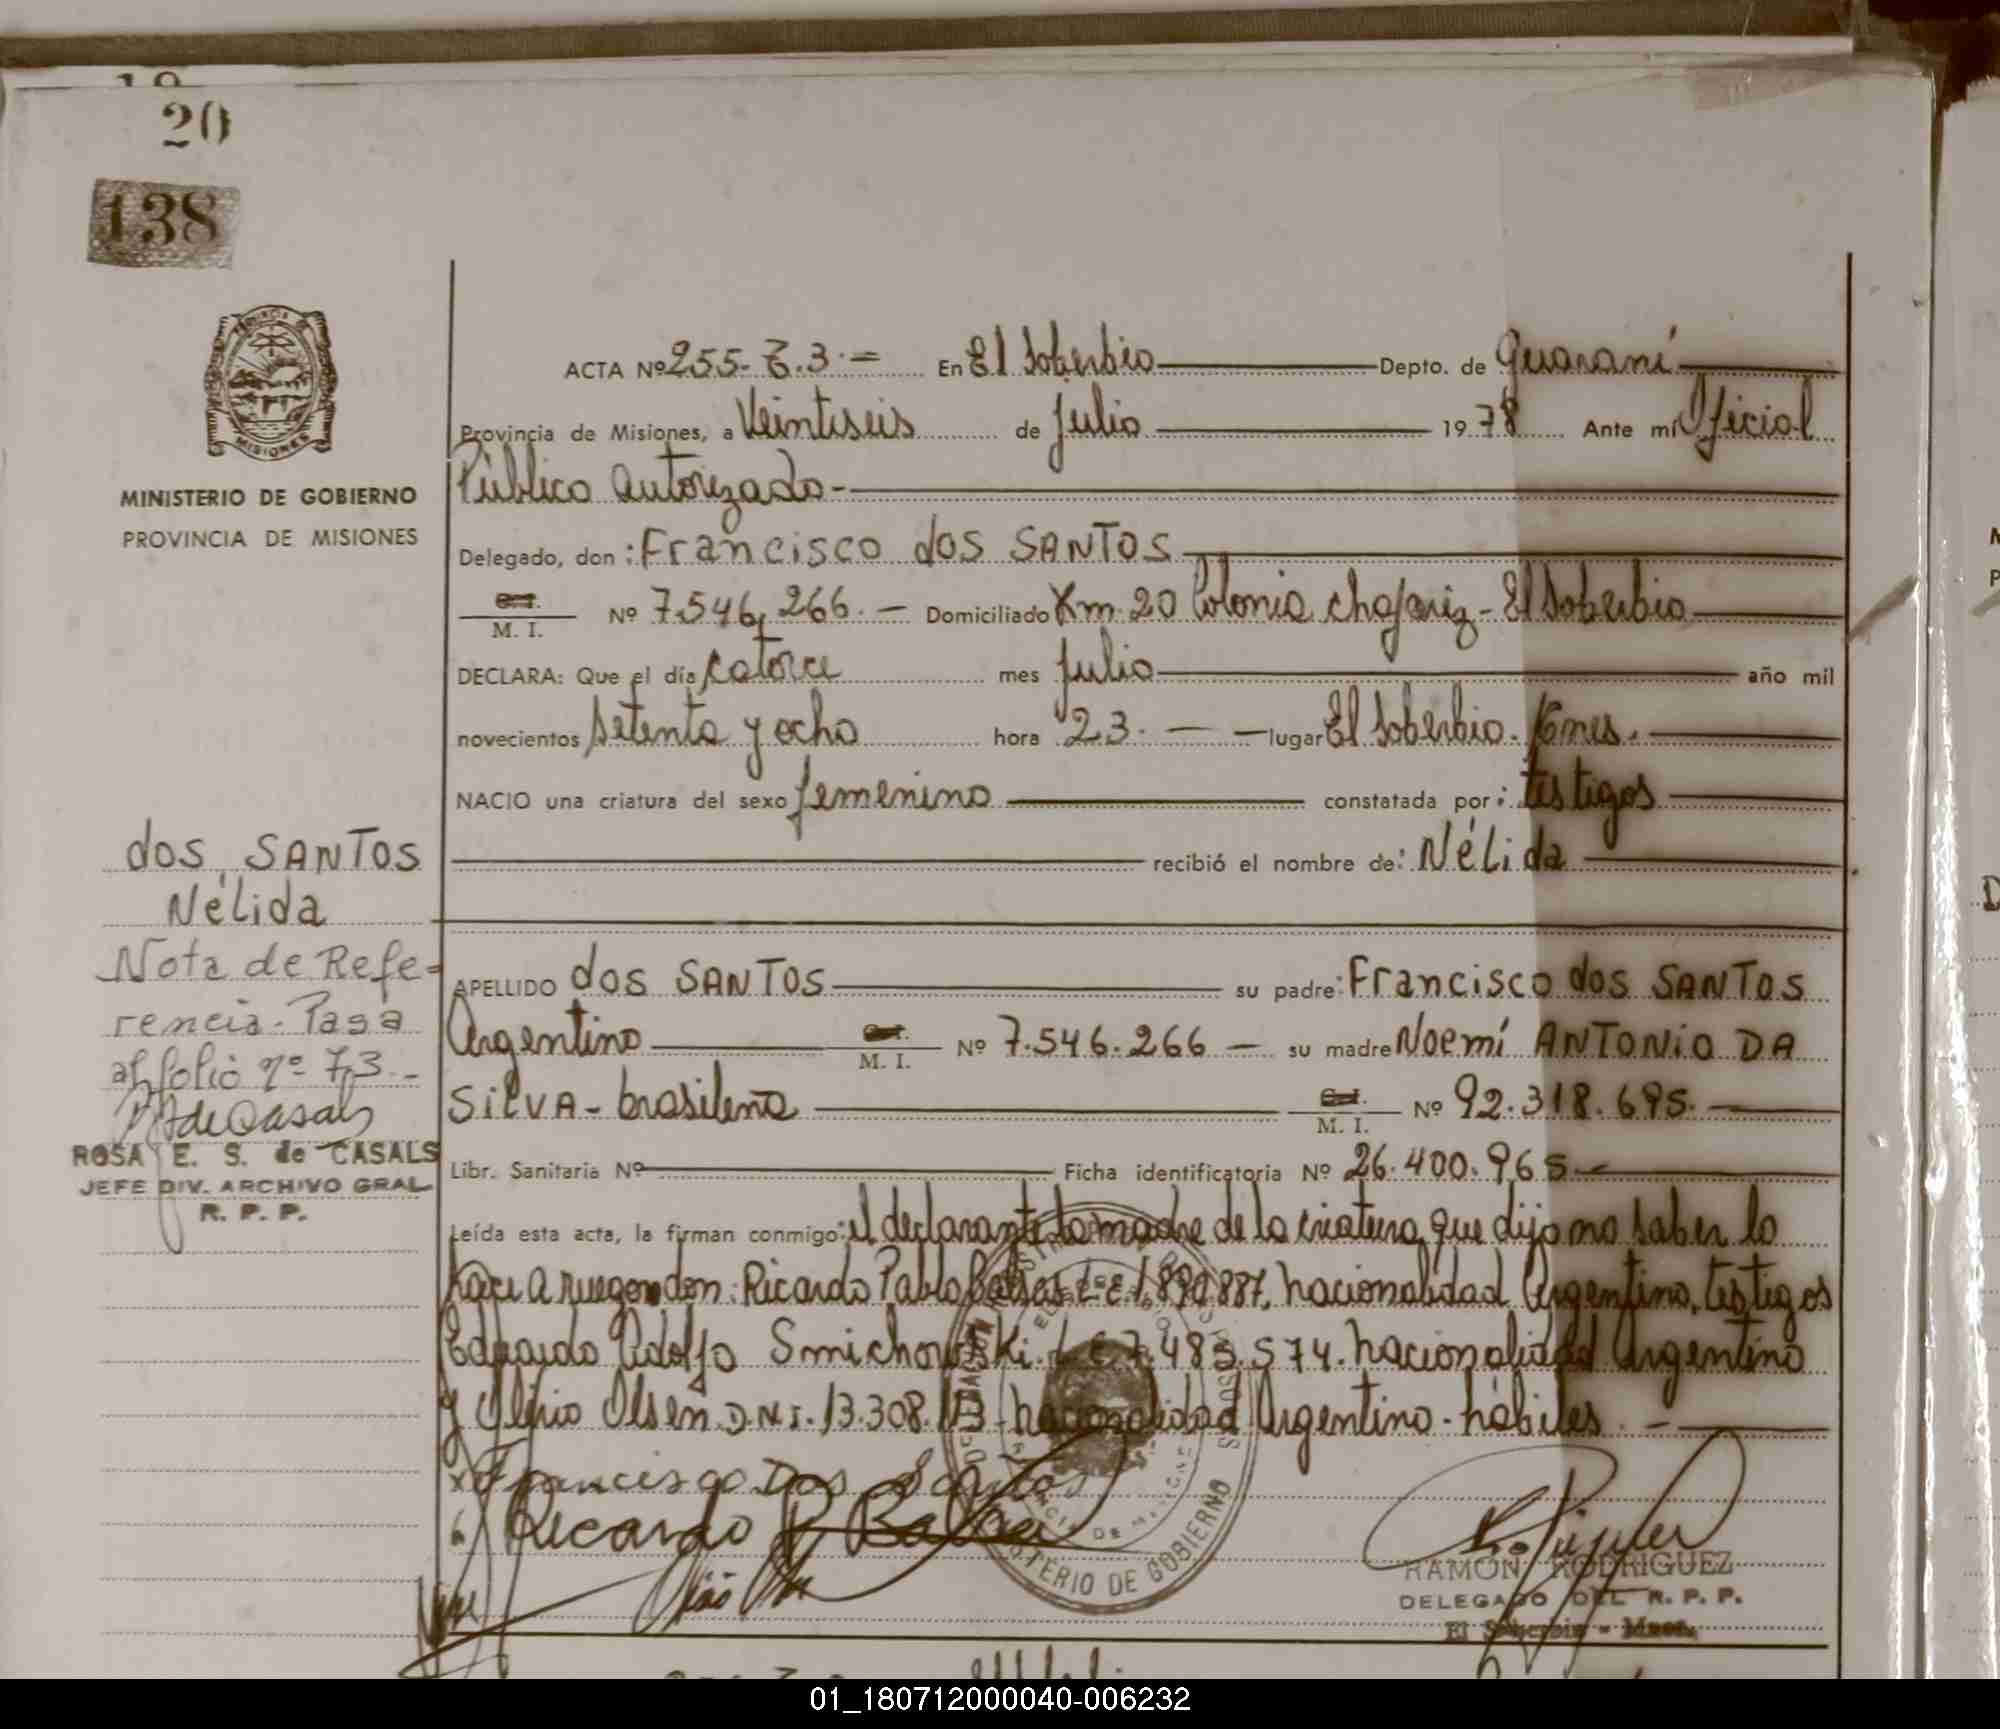 20
138
PROVINCIA DE
MISIONES
MINISTERIO DE GOBIERNO
PROVINCIA DE MISIONES
ACTA Nº 255- T.3.= En El Soberbio Depto. de Guaraní
Provincia de Misiones, a Veintiseis de Julio 1978 Ante mí Oficial
Público Autorizado-
Delegado, don: Francisco dos SANTOS
M. I. Nº 7.546.266.- Domiciliado Km. 20 Colonia Chafariz- El Soberbio
DECLARA: Que el día catorce mes Julio año mil
novecientos setenta y ocho hora 23. - - lugar El Soberbio.
NACIO una criatura del sexo femenino constatada por: testigos
recibió el nombre de: Nélida
dos SANTOS
Nélida
Nota de Refe-
rencia- Pasa
al folio nº 73.-
ROSA E. S. de CASALS
JEFE DIV. ARCHIVO GRAL
R. P. P.
APELLIDO dos SANTOS su padre: Francisco dos SANTOS
Argentino M. I. Nº 7.546.266 - su madre Noemí ANTONIO DA
SILVA- brasileña M. I. Nº 92.318.695.-
Libr. Sanitaria Nº Ficha identificatoria Nº 26.400.965-
Leída esta acta, la firman conmigo: el declarante, la madre de la criatura que dijo no saber lo
hace a ruego don: Ricardo Pablo L.E. nacionalidad Argentino, testigos
Eduardo Adolfo Smichowski. L.E. 7.483.574. nacionalidad Argentino
y Olsen D.N.I. 13.308. nacionalidad Argentino- hábiles. -
Francisco Dos Santos
Ricardo P.
MINISTERIO DE GOBIERNO
RAMÓN RODRIGUEZ
DELEGADO DEL R. P. P.
El Soberbio - Mnes.
01_180712000040-006232